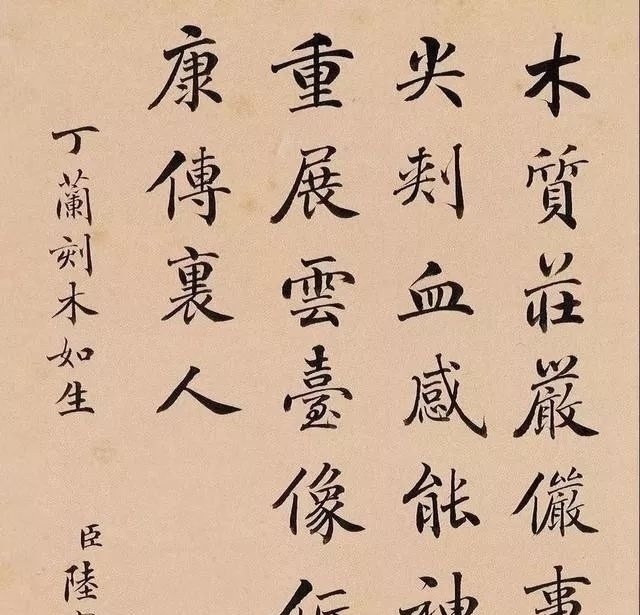 木質莊嚴儼事
尖刺血感能神
重展雲臺像
康傳裏人
丁蘭刻木如生
臣陸